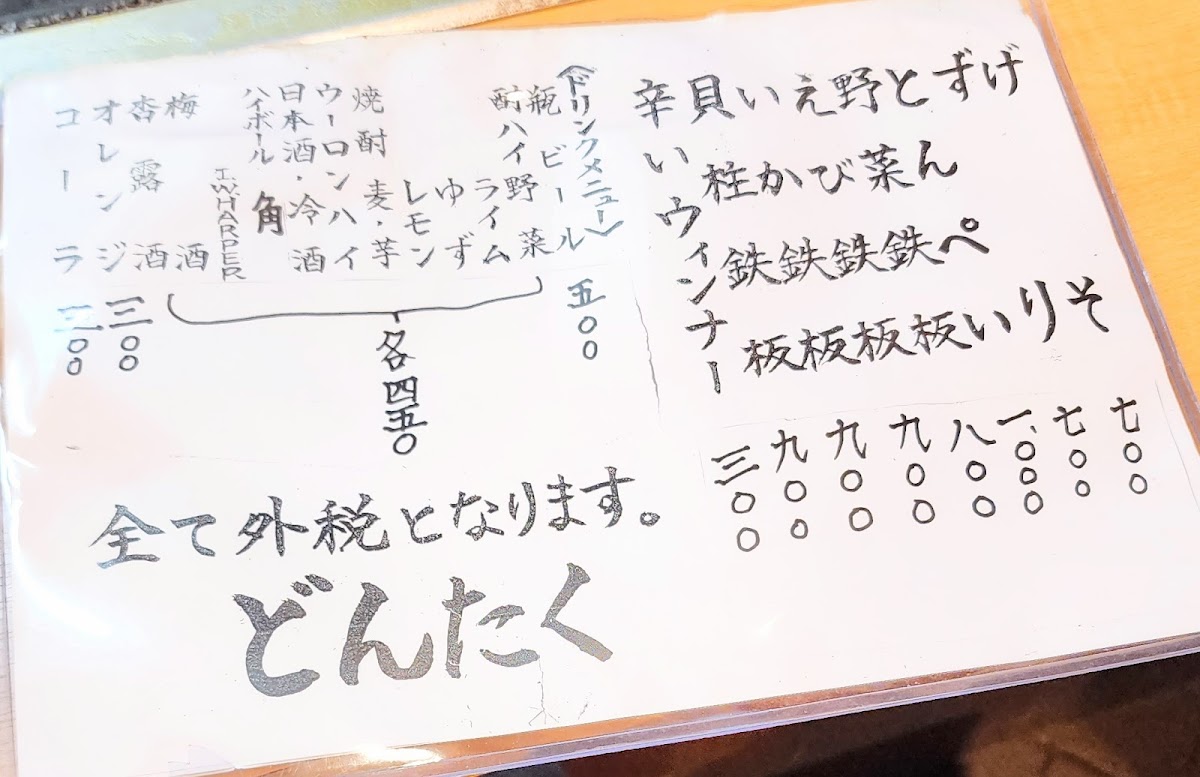 げそ 七〇〇
ずり 七〇〇
とんぺい 一、〇〇〇
野菜鉄板 八〇〇
えび鉄板 九〇〇
いか鉄板 九〇〇
貝柱鉄板 九〇〇
辛いウィンナー 三〇〇
《ドリンクメニュー》
瓶ビール 五〇〇
酎ハイ 野菜
ライム
ゆず
レモン
焼酎 麦・芋
ウーロンハイ
日本酒・冷酒
ハイボール 角
I.W.HARPER
梅酒
杏露酒
各四五〇
オレンジ 三〇〇
コーラ 三〇〇
全て外税となります。
どんたく